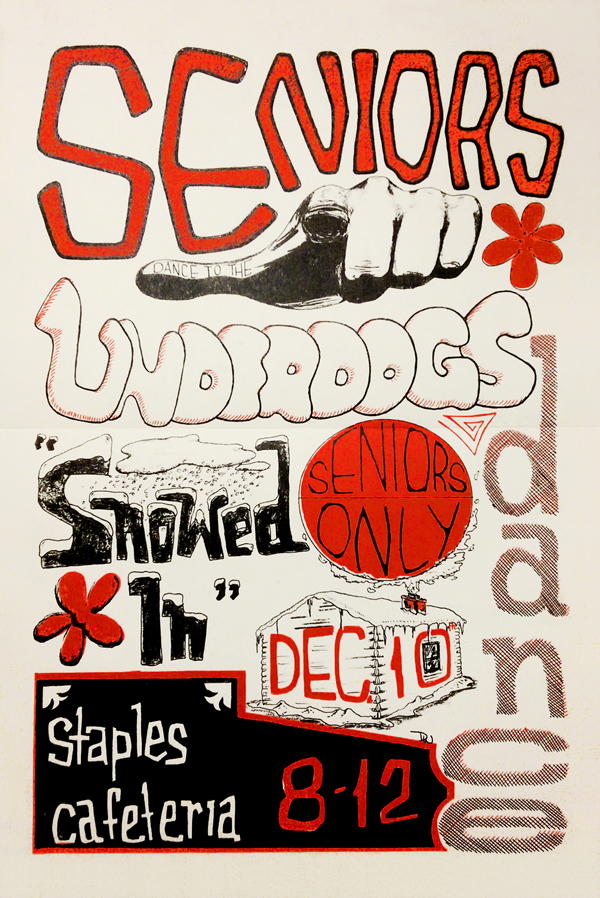 SENIORS
DANCE TO THE
UNDERDOGS
dance
"Snowed
In"
SENIORS
ONLY
DEC. 10TH
Staples
cafeteria
8-12